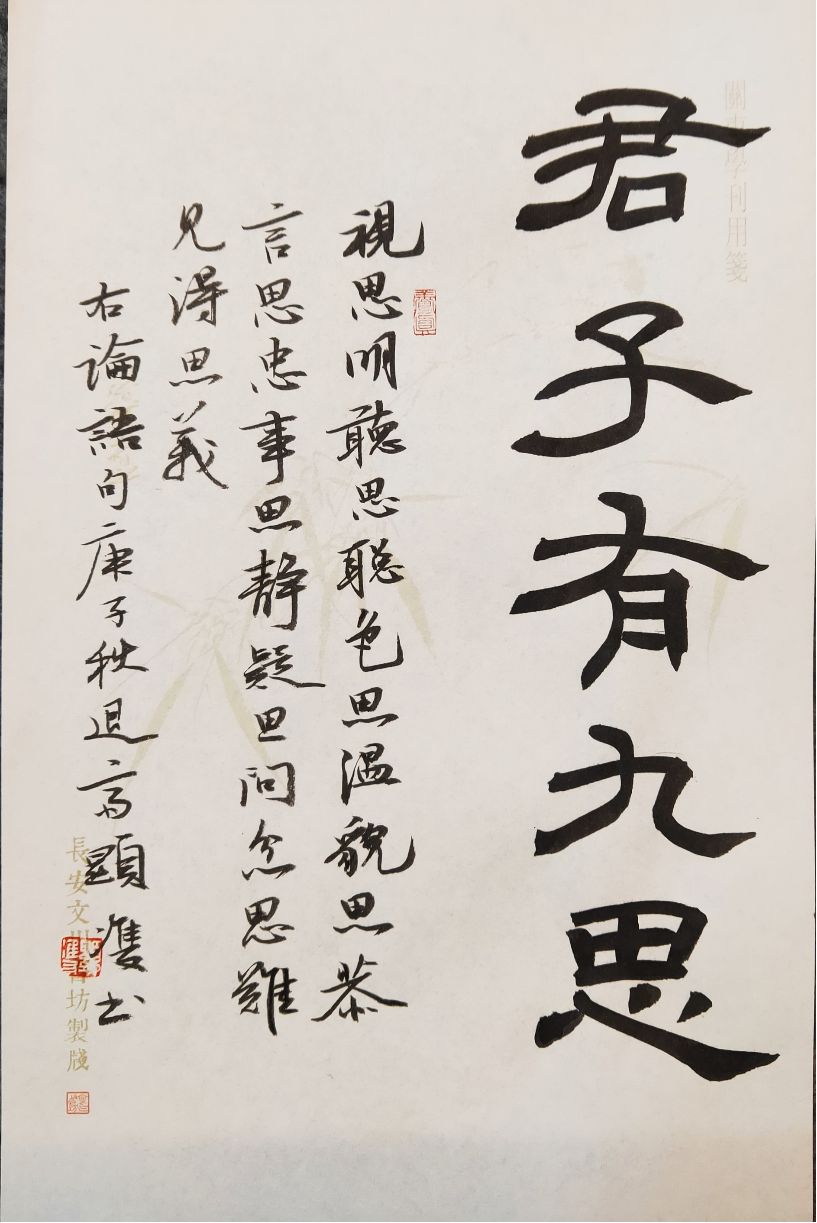 君子有九思
視思明聽思聰色思温貌思恭
言思忠事思静疑思問忿思難
見得思義
右論語句庚子秋退高顯濩书
用箋
長安文
坊製牋